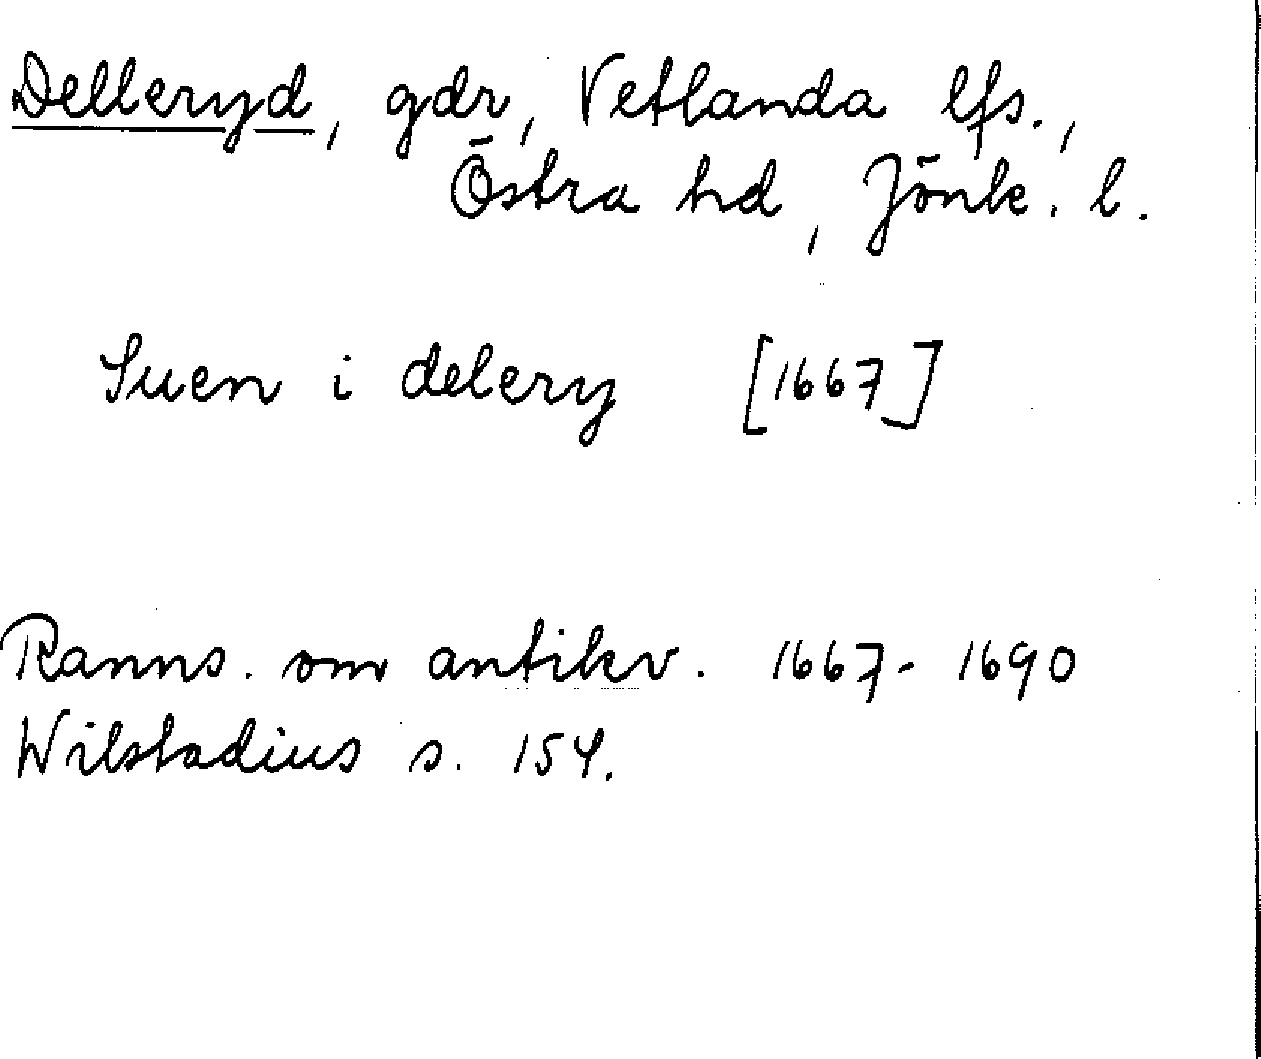 Delleryd, gdr, Vetlanda lfs.,
Östra hd, Jönk. l.
Suen i delery [1667]
Ranns. om antikv. 1667-1690
Wilstadius s. 154.